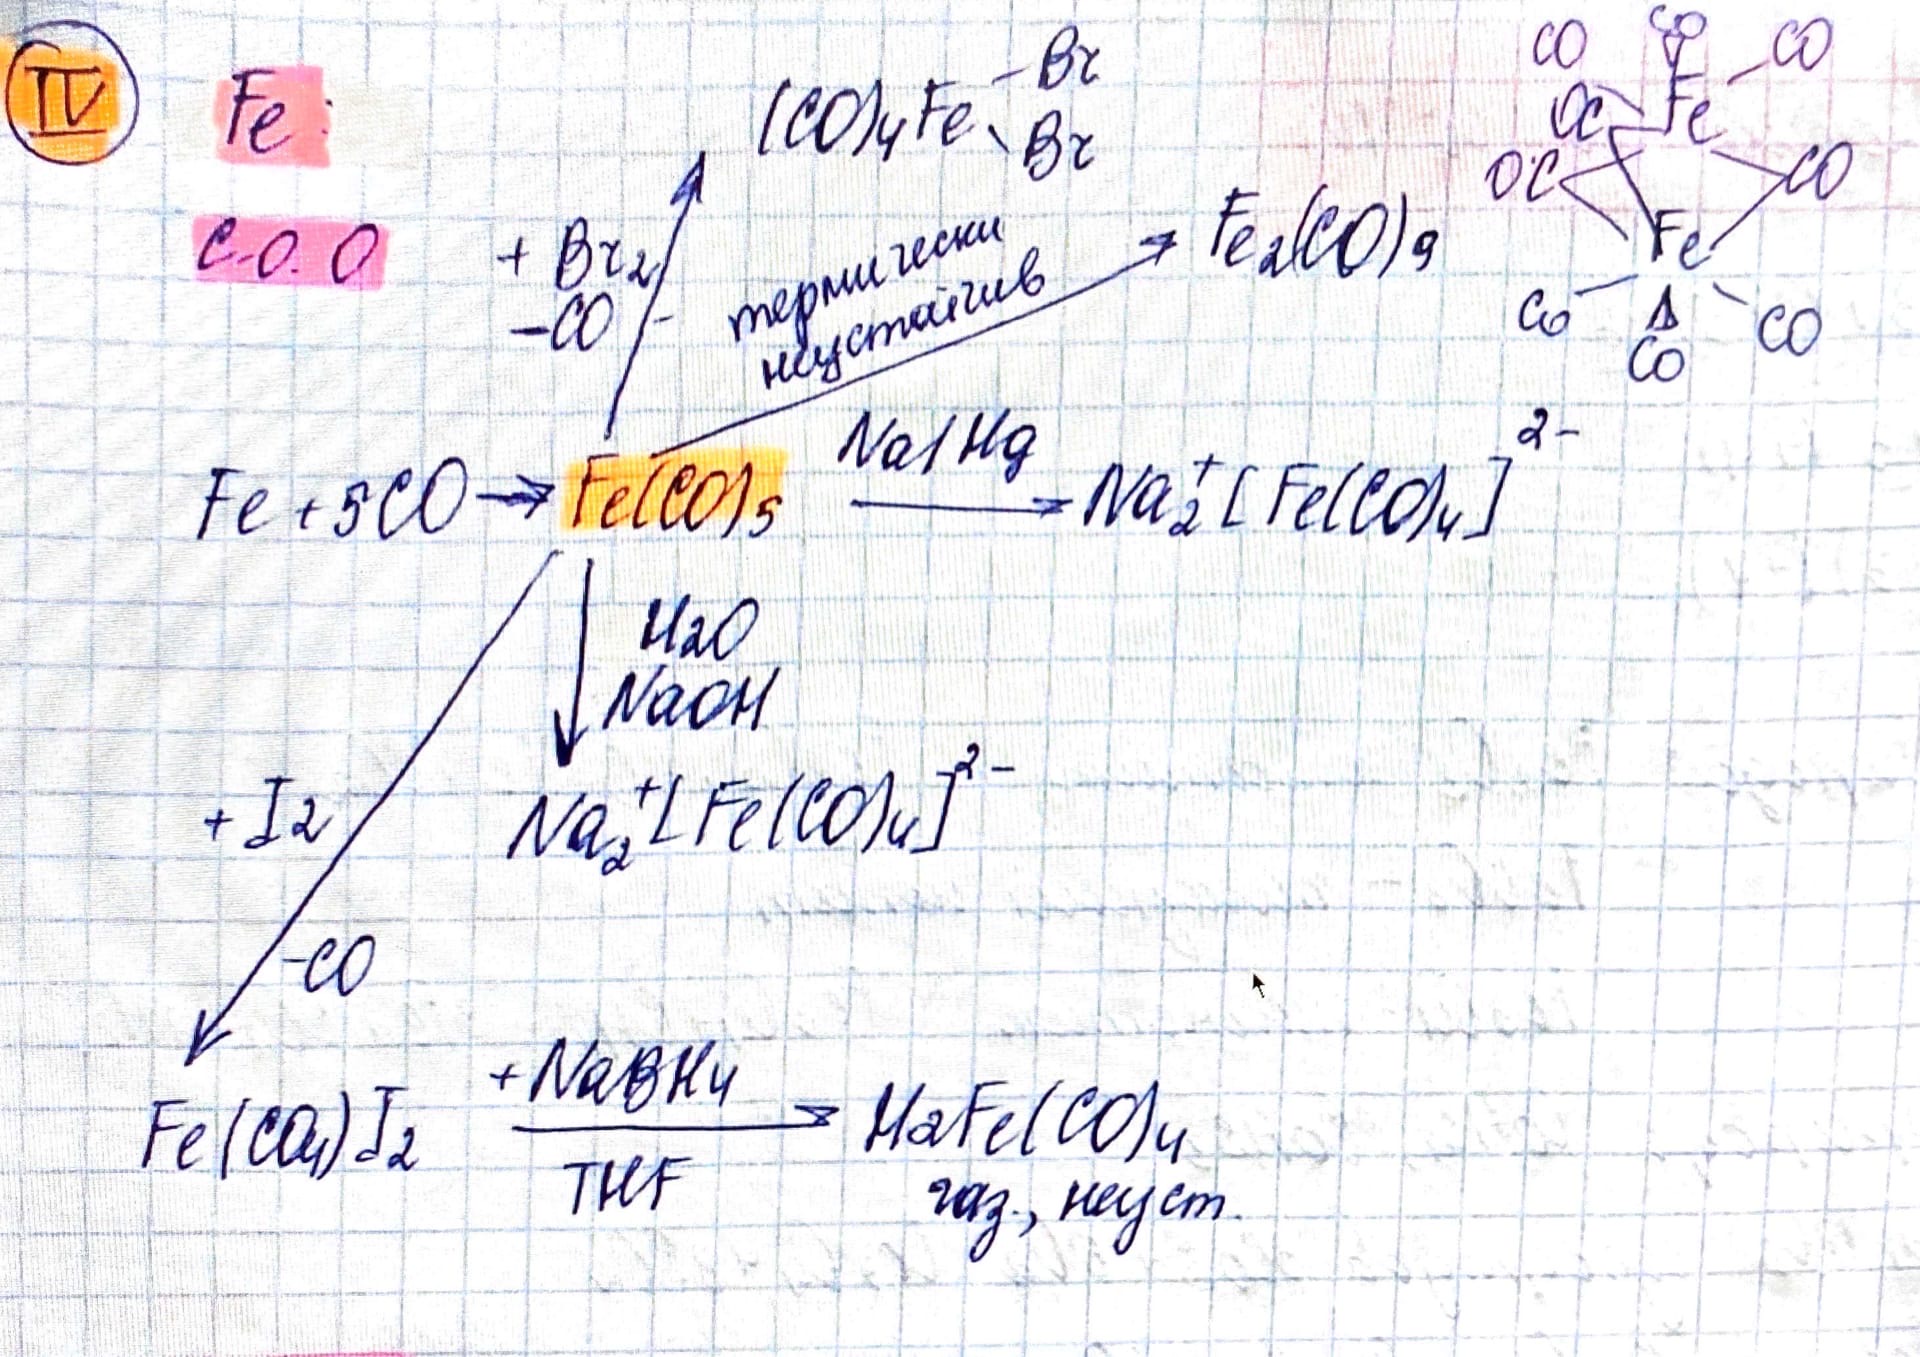 IV
Fe:
C.O. O
(CO)₄Fe
Br
Br
+ Br₂
-CO
термически
неустойчив
Fe₂(CO)₉
CO
CO
CO
OC
Fe
OC
CO
Fe
CO
CO
CO
Fe + 5CO → Fe(CO)₅
Na/Hg
→ Na₂⁺[Fe(CO)₄]²⁻
H₂O
NaOH
Na₂⁺[Fe(CO)₄]²⁻
+ I₂
-CO
Fe(CO₄)I₂
+ NaBH₄
THF
H₂Fe(CO)₄
газ., неуст.